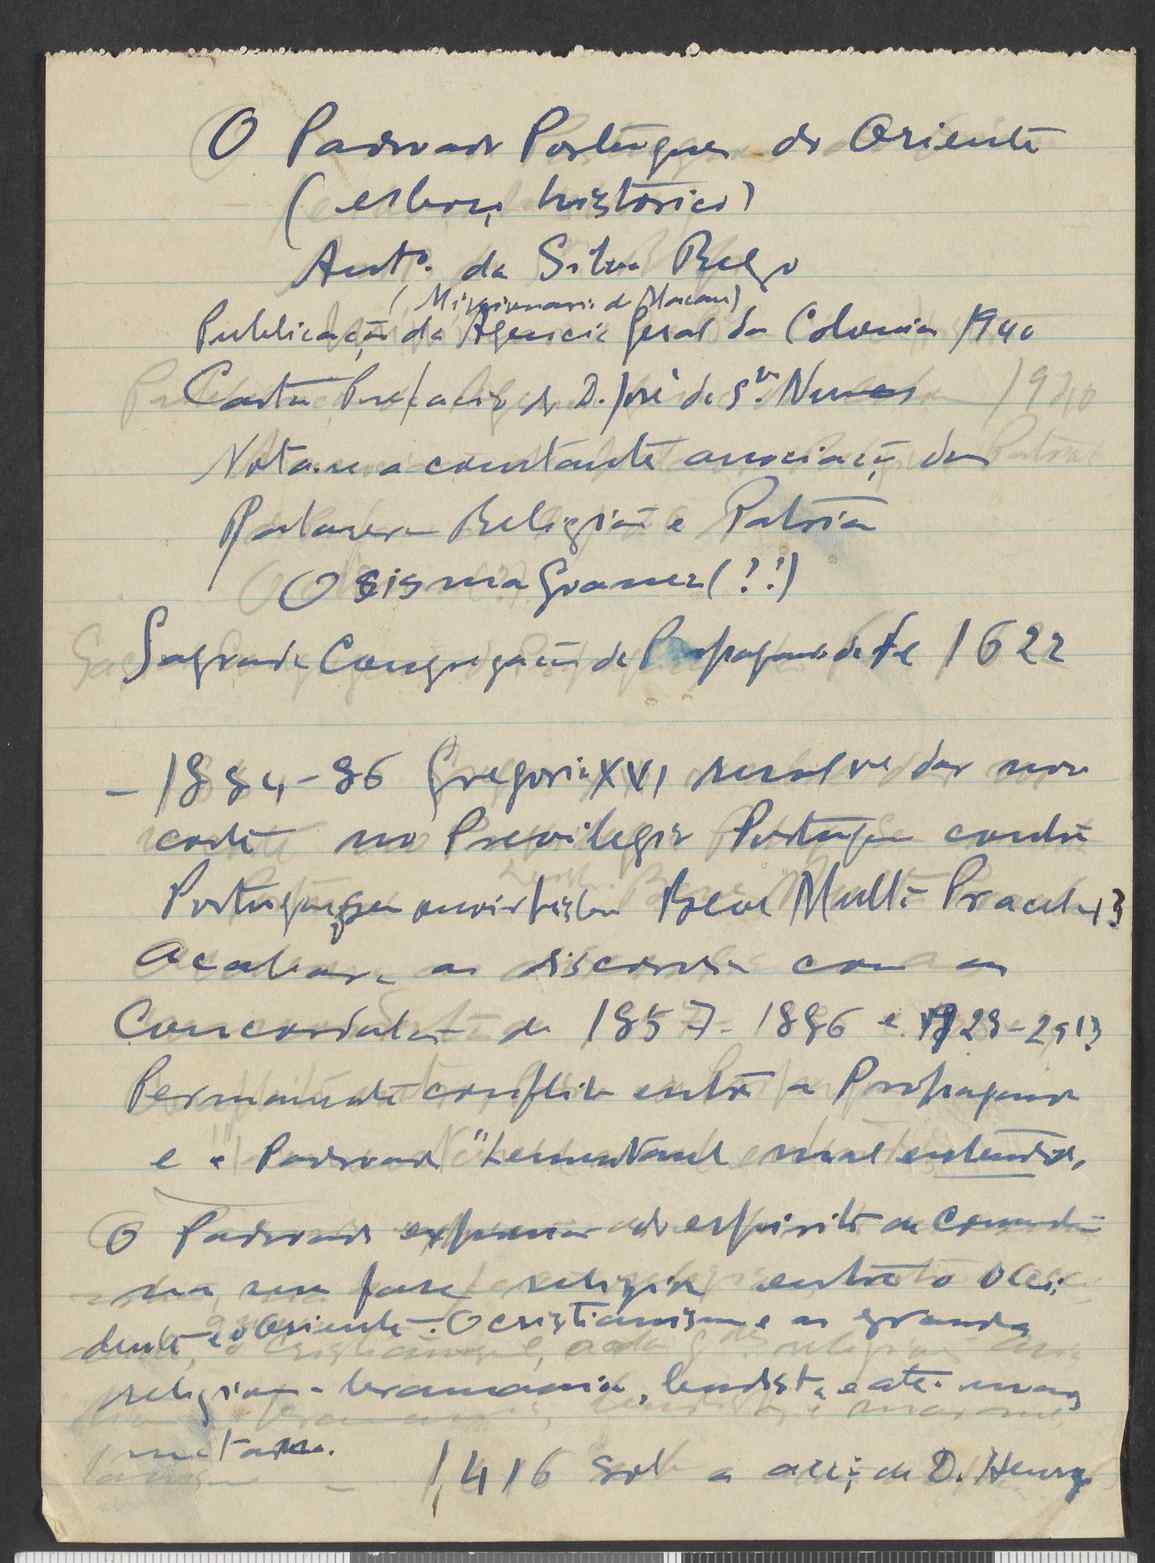 O Padroado Português do Oriente
(esboço histórico)
Antº. da Silva Rego
(Missionario de Macau)
Publicação da Agencia Geral das Colonias 1940
Carta Prefacio de D. José da Sª. Nunes
Nota-se a constante associação das
palavras Religião e Patria
O sisma Goanez (?!)
Sagrada Congregação de Propaganda Fé 1622
- 1834-36 Gregorio XVI resolve dar novo
corte no Previlegio Português contra
Breve Multa Praeclare
Acabaram as discordias com as
Concordatas de 1857-1886 e 1928-29
Permanente conflito entre a Propaganda
e o Padroado "Lamentavel mal entendido,
O Padroado do espirito de
na sua fase religiosa entre o Oci-
dente e o Oriente. O cristianismo e as grandes
religiões - bramanica, budista e até
1416 sob a acção de D. Henrq